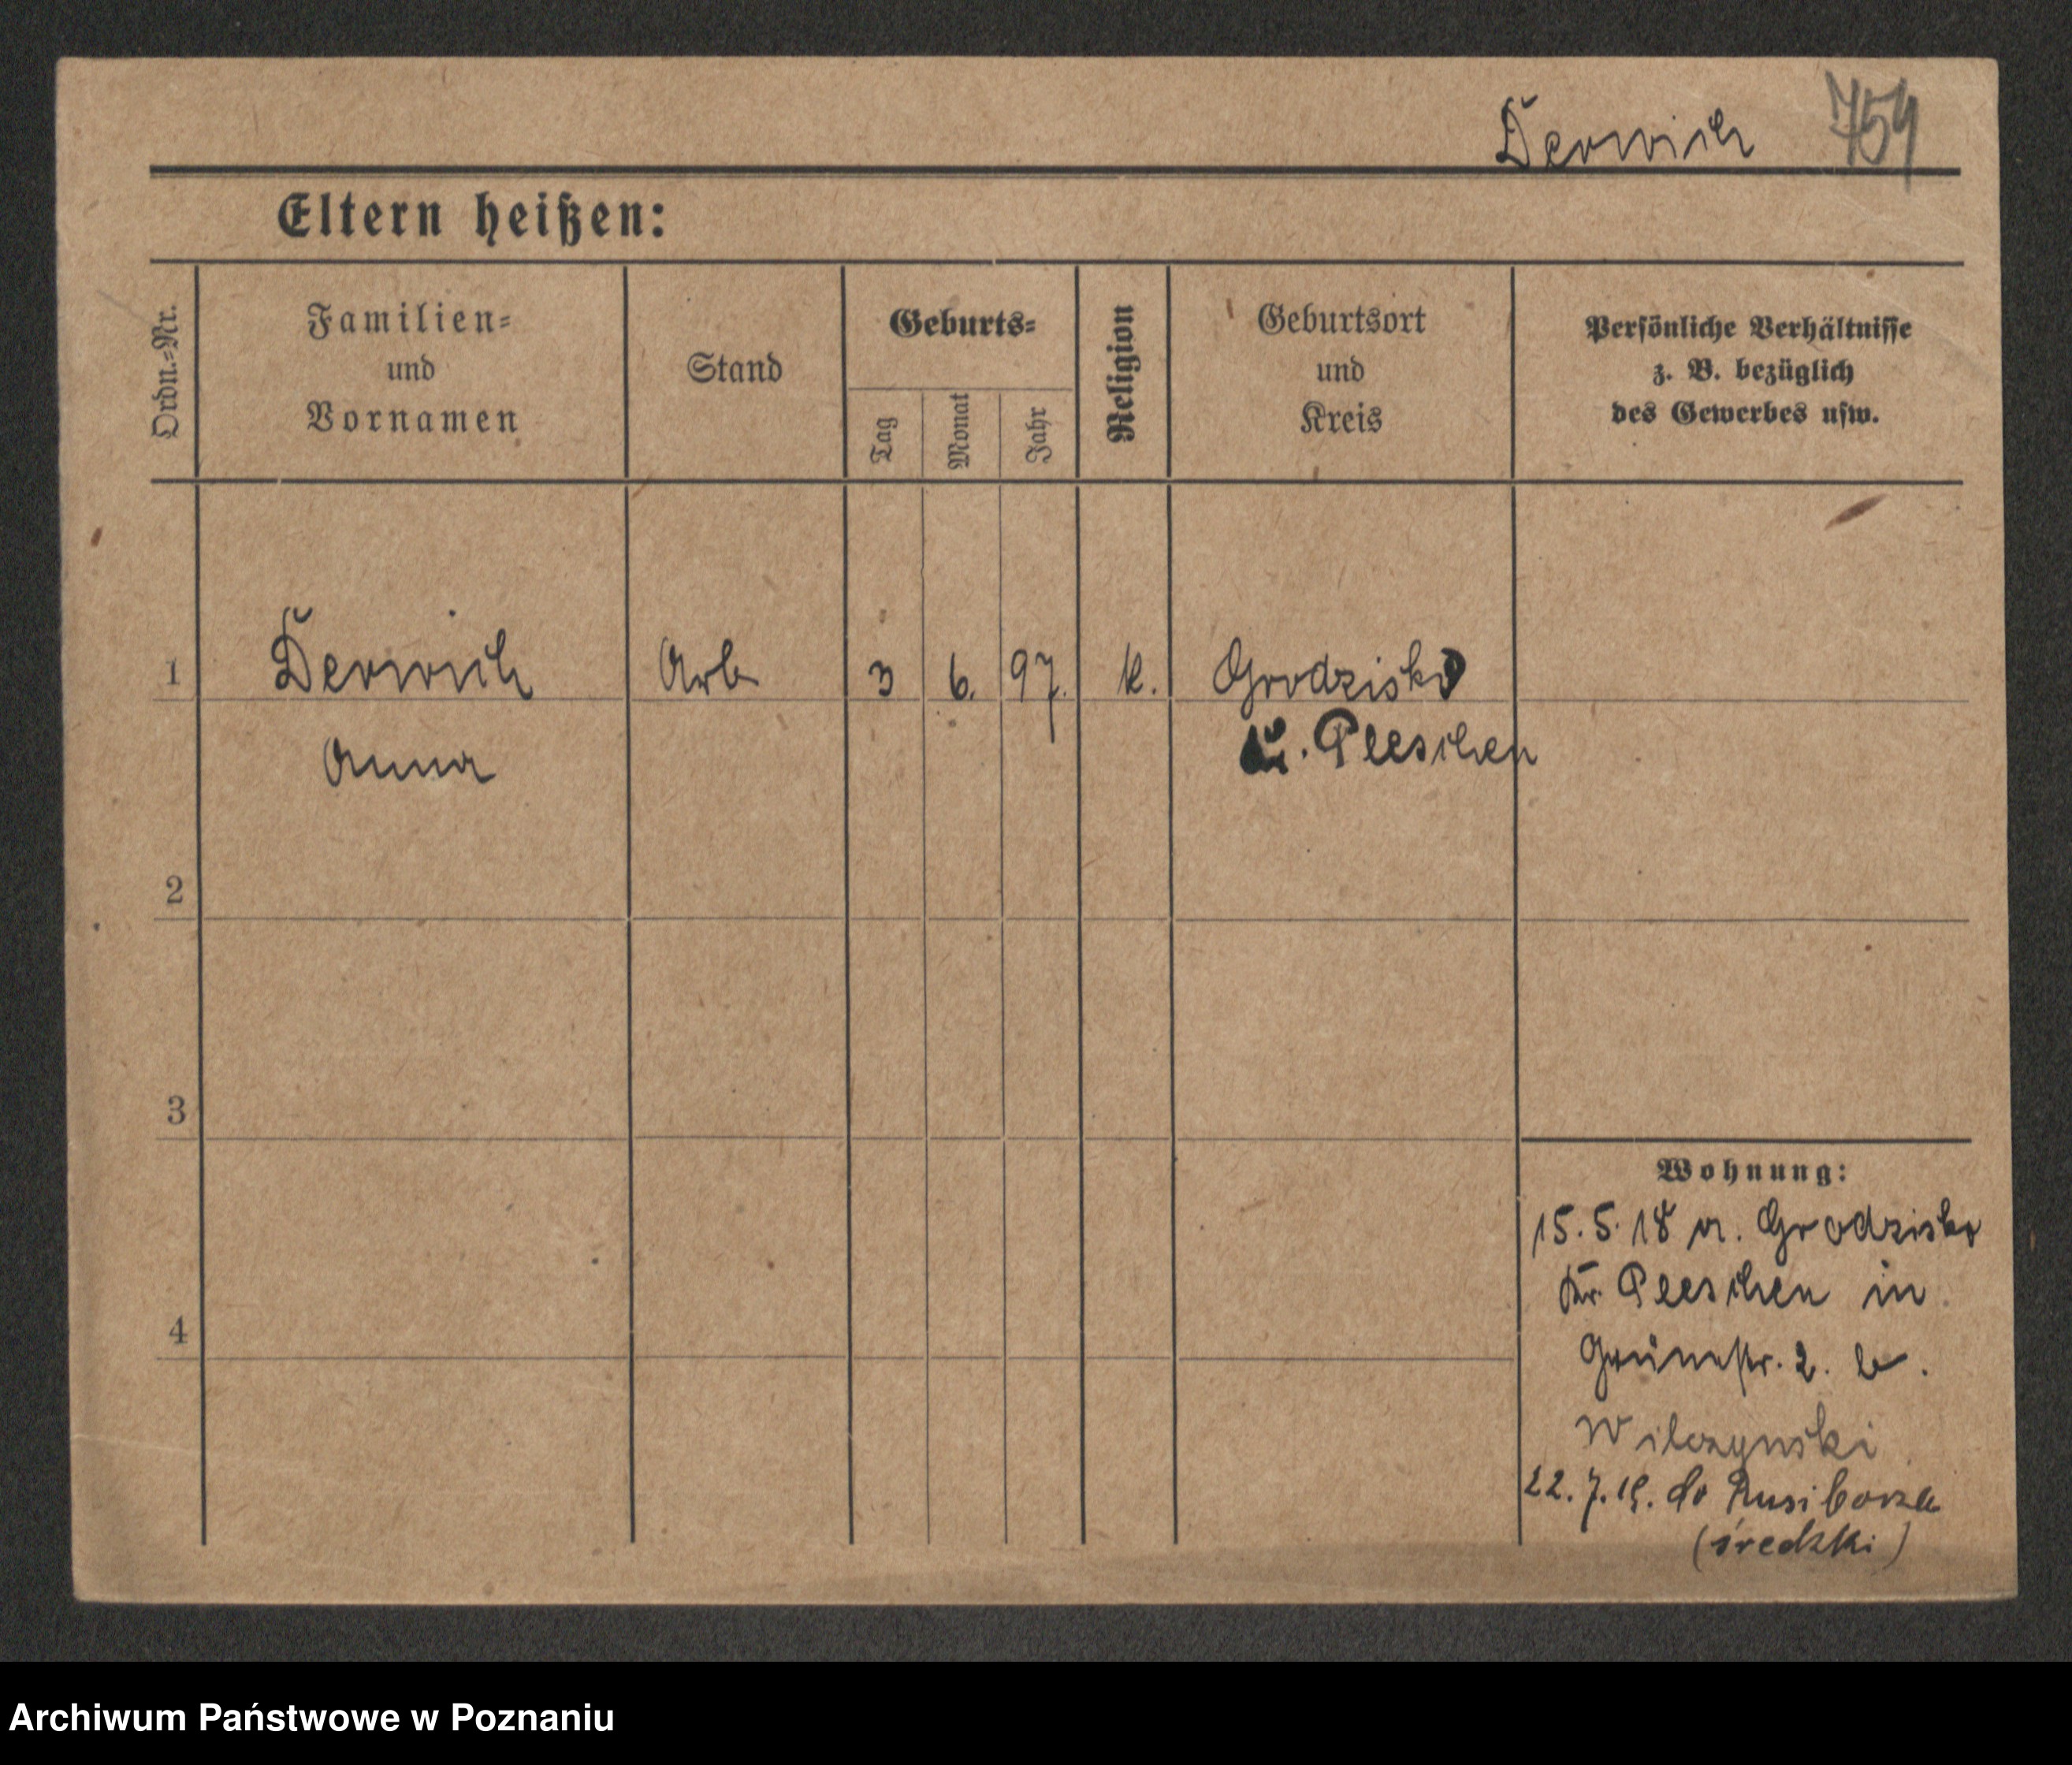 Derwich 754
Eltern heißen:
Ordn.-Nr.
Familien-
und
Vornamen
Stand
Geburts-
Tag
Monat
Jahr
Religion
Geburtsort
und
Kreis
Persönliche Verhältnisse
z. B. bezüglich
des Gewerbes usw.
1 Derwich Arb 3 6. 97. k. Grodzisko
Anna Kr. Pleschen
2
3
4
Wohnung:
15.5.18 a. Grodzisko
Kr. Pleschen in
Grünestr. 2. b.
Wilczynski
22.7.19. do Rusiborza
(średzki)
Archiwum Państwowe w Poznaniu